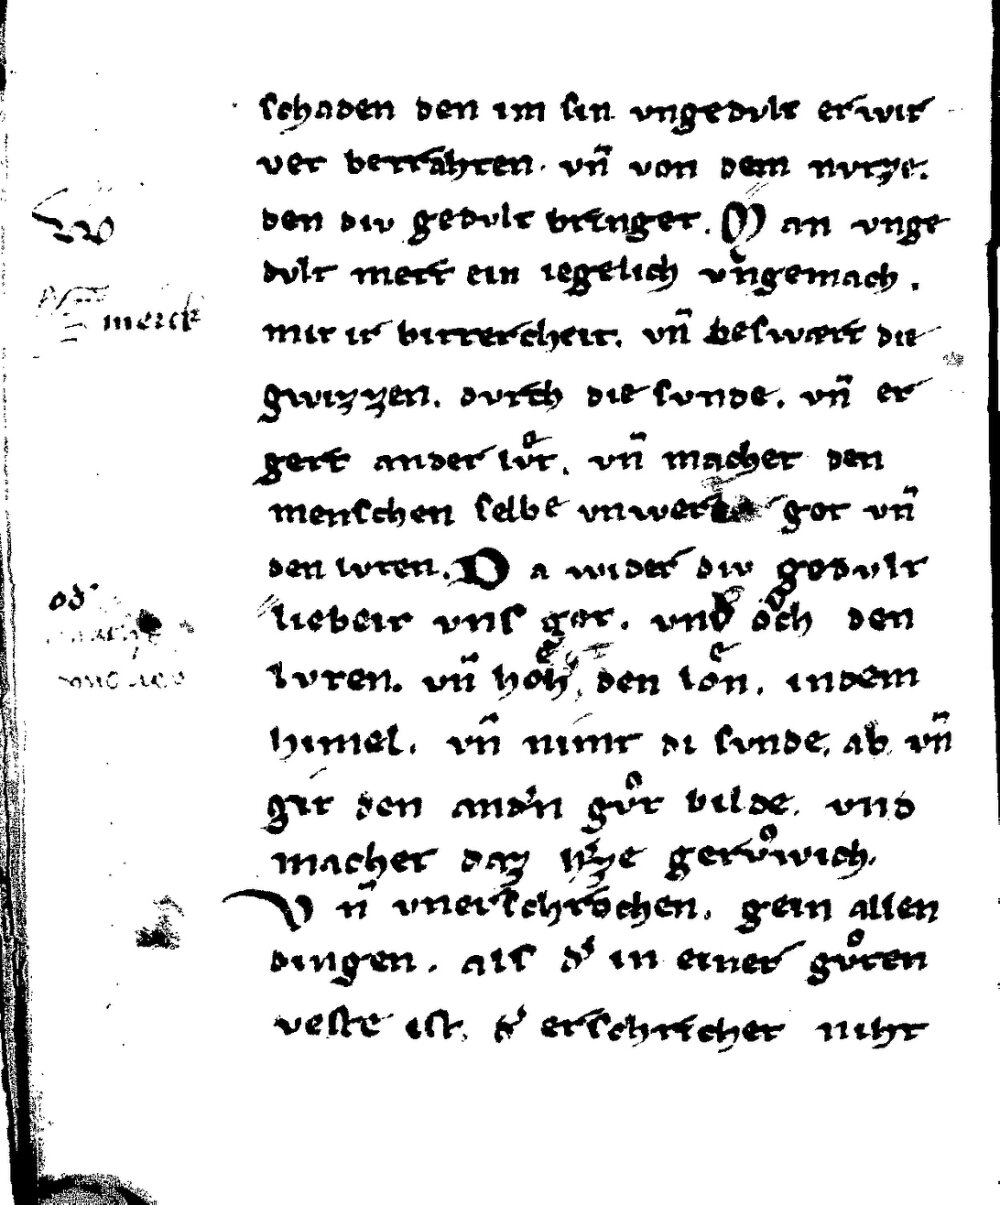 schaden den im sin vngedvlt erwir
vet betrahten. vn̄ von dem nvtze.
den div gedvlt bringet. Man vnge
dvlt mert ein iegelich vngemach.
mit ir bittercheit. vn̄ beswært die
merck
gwizzen. dvrch die svnde. vn̄ er
gert ander lvͤt. vn̄ machet den
menschen selbe vnwert got vn̄
den lvten. Da wider div gedvlt
od̛
liebeit vns got. vnd oͮch den
lvten. vn̄ hoͤh̛ den lon̄. indem
himel. vn̄ nimt di svnde, ab vn̄
git den and̛n gvͦt bilde. vnd
machet daz hͤze gervͦwich.
Vn̄ vnerschrochen. gein allen
dingen. als d̛ in einer gvͦten
veste ist, d̛ erschrichet niht